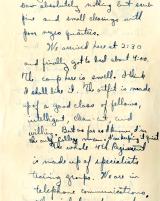 saw absolutely nothing but scrub
pine and small clearings with
poor negro quarters.
We arrived here at 2:30
and finally got to bed about 4:00.
The camp here is swell. I think
I shall like it. The outfit is made
up of a good class of fellows,
intelligent, clean-cut, and
willing. But so far as I
the whole Regiment
is made up of specialists
training groups. We are in
telephone communications.